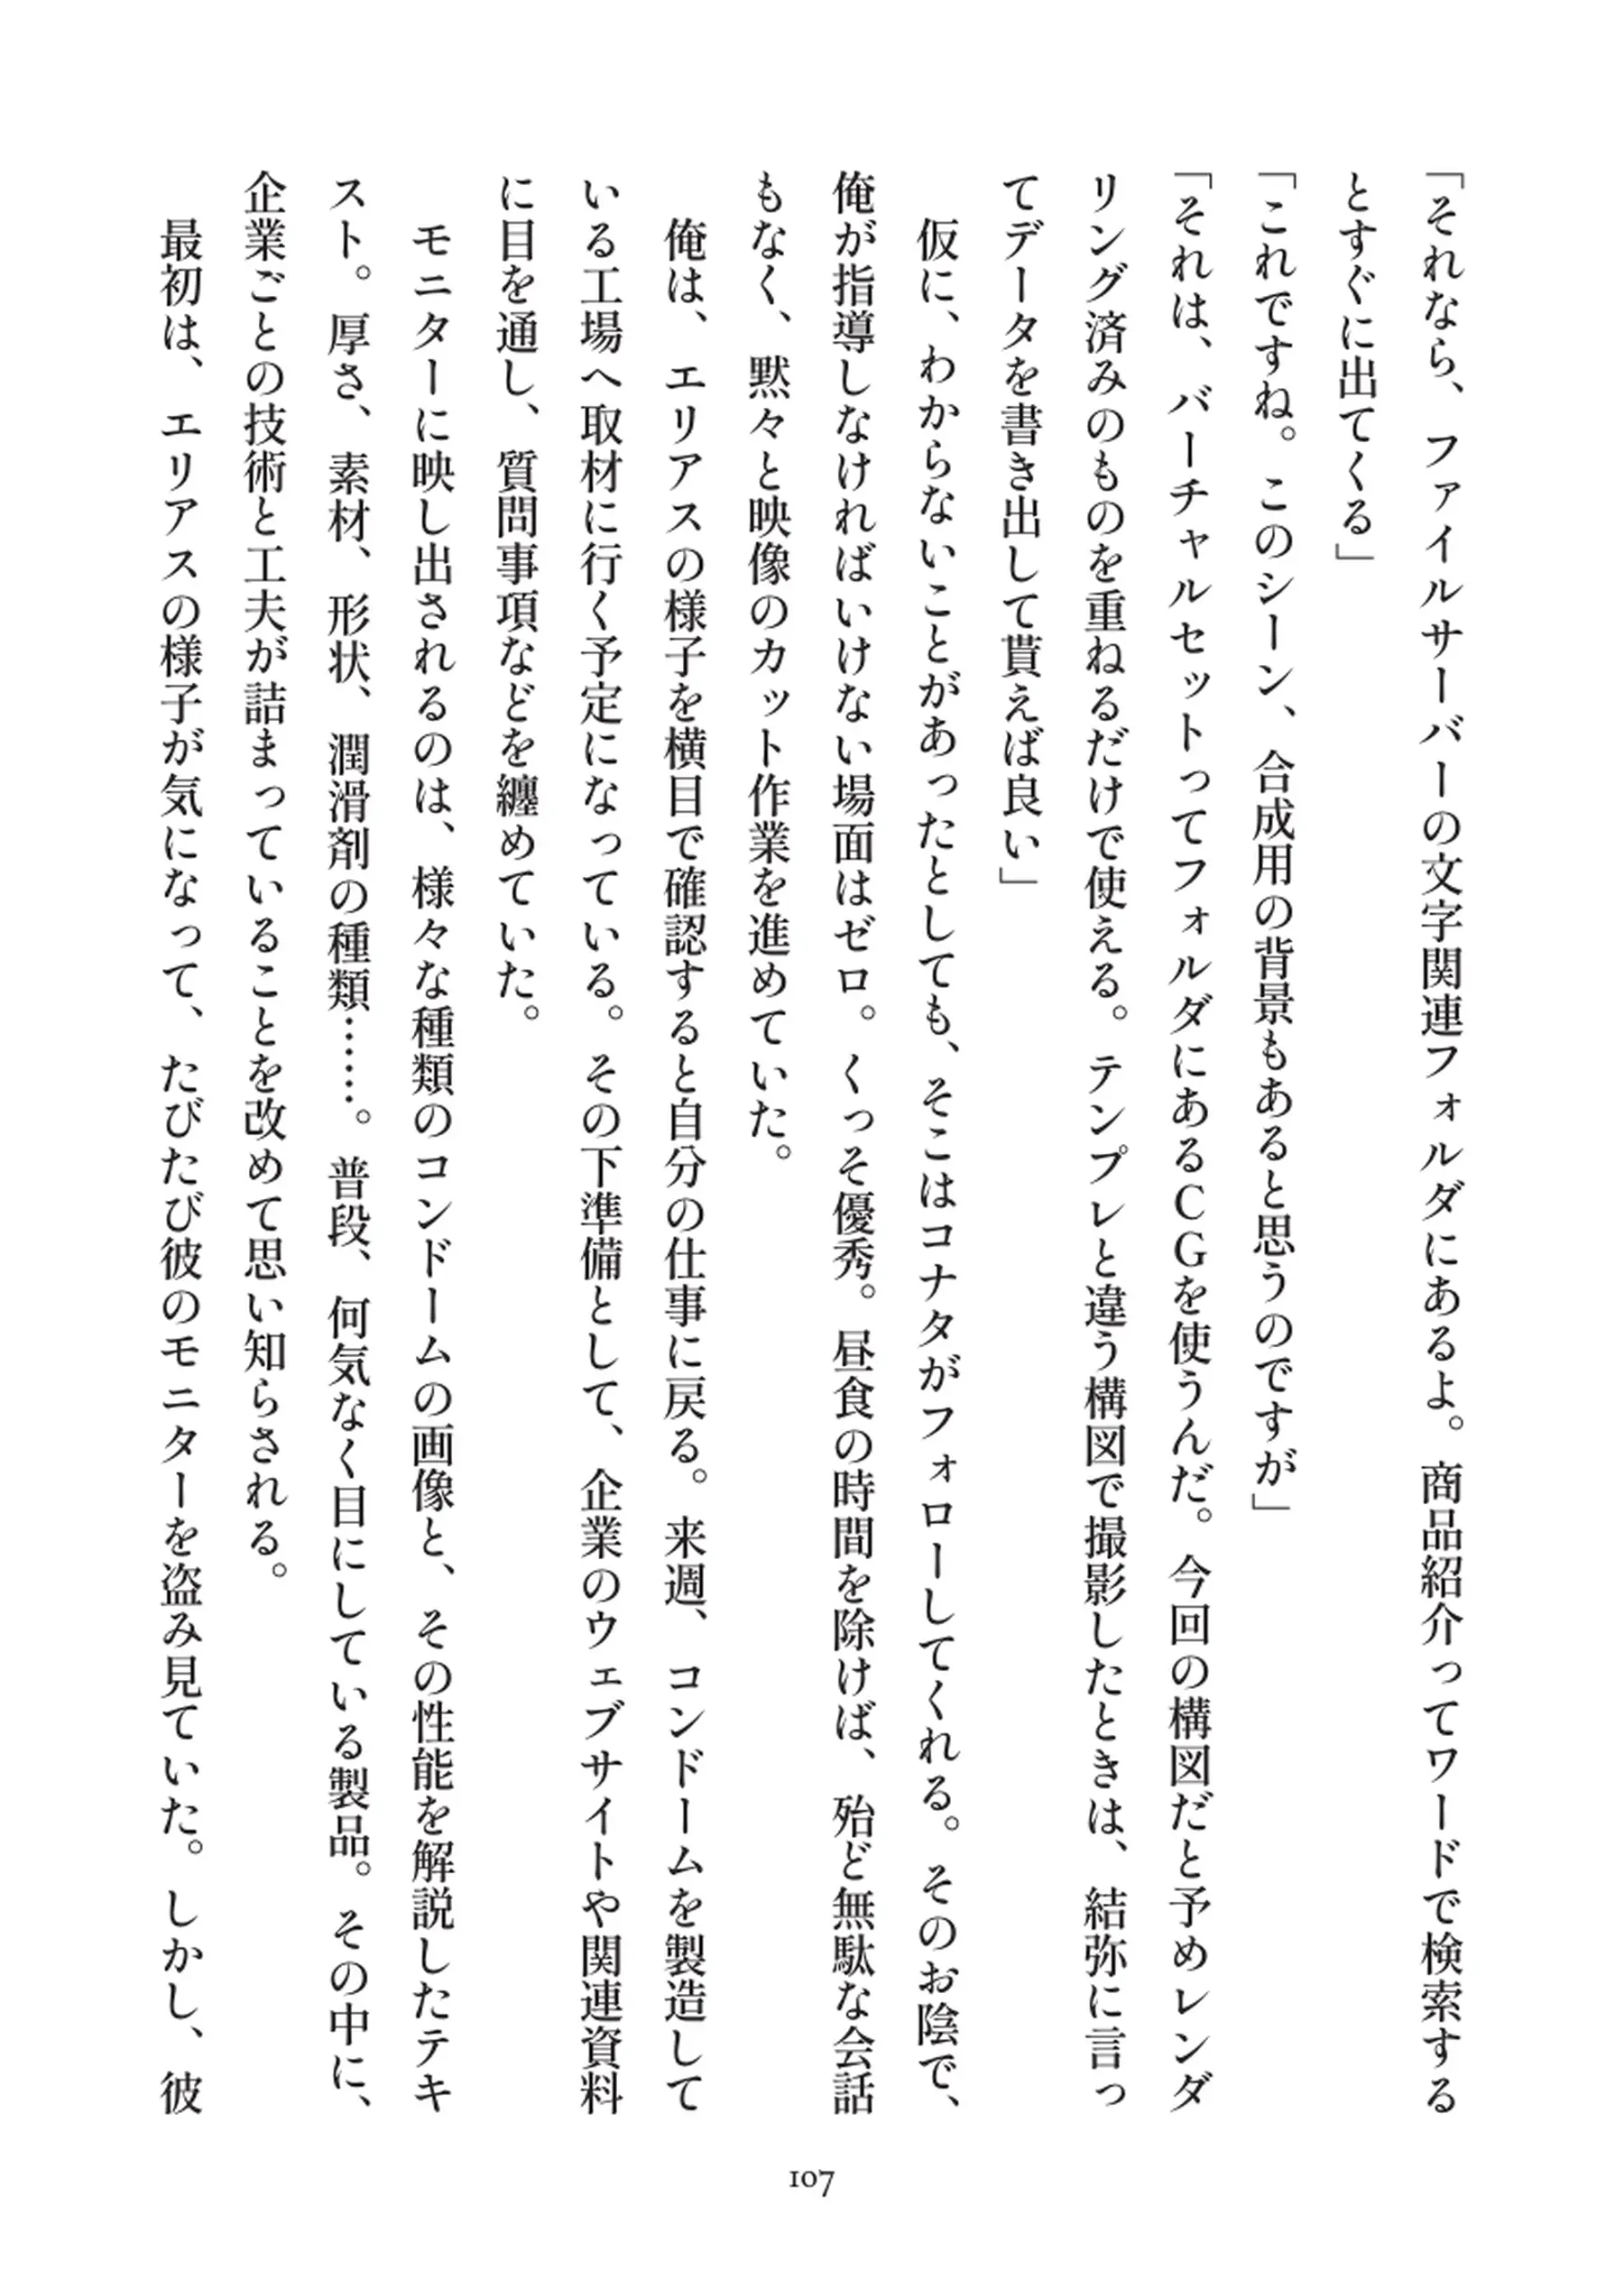 「それなら、ファイルサーバーの文字関連フォルダにあるよ。商品紹介ってワードで検索する
とすぐに出てくる」
「これですね。このシーン、合成用の背景もあると思うのですが」
「それは、バーチャルセットってフォルダにあるCGを使うんだ。今回の構図だと予めレンダ
リング済みのものを重ねるだけで使える。テンプレと違う構図で撮影したときは、結弥に言っ
てデータを書き出して貰えば良い」
　仮に、わからないことがあったとしても、そこはコナタがフォローしてくれる。そのお陰で、
俺が指導しなければいけない場面はゼロ。くっそ優秀。昼食の時間を除けば、殆ど無駄な会話
もなく、黙々と映像のカット作業を進めていた。
　俺は、エリアスの様子を横目で確認すると自分の仕事に戻る。来週、コンドームを製造して
いる工場へ取材に行く予定になっている。その下準備として、企業のウェブサイトや関連資料
に目を通し、質問事項などを纏めていた。
　モニターに映し出されるのは、様々な種類のコンドームの画像と、その性能を解説したテキ
スト。厚さ、素材、形状、潤滑剤の種類……。普段、何気なく目にしている製品。その中に、
企業ごとの技術と工夫が詰まっていることを改めて思い知らされる。
　最初は、エリアスの様子が気になって、たびたび彼のモニターを盗み見ていた。しかし、彼
107